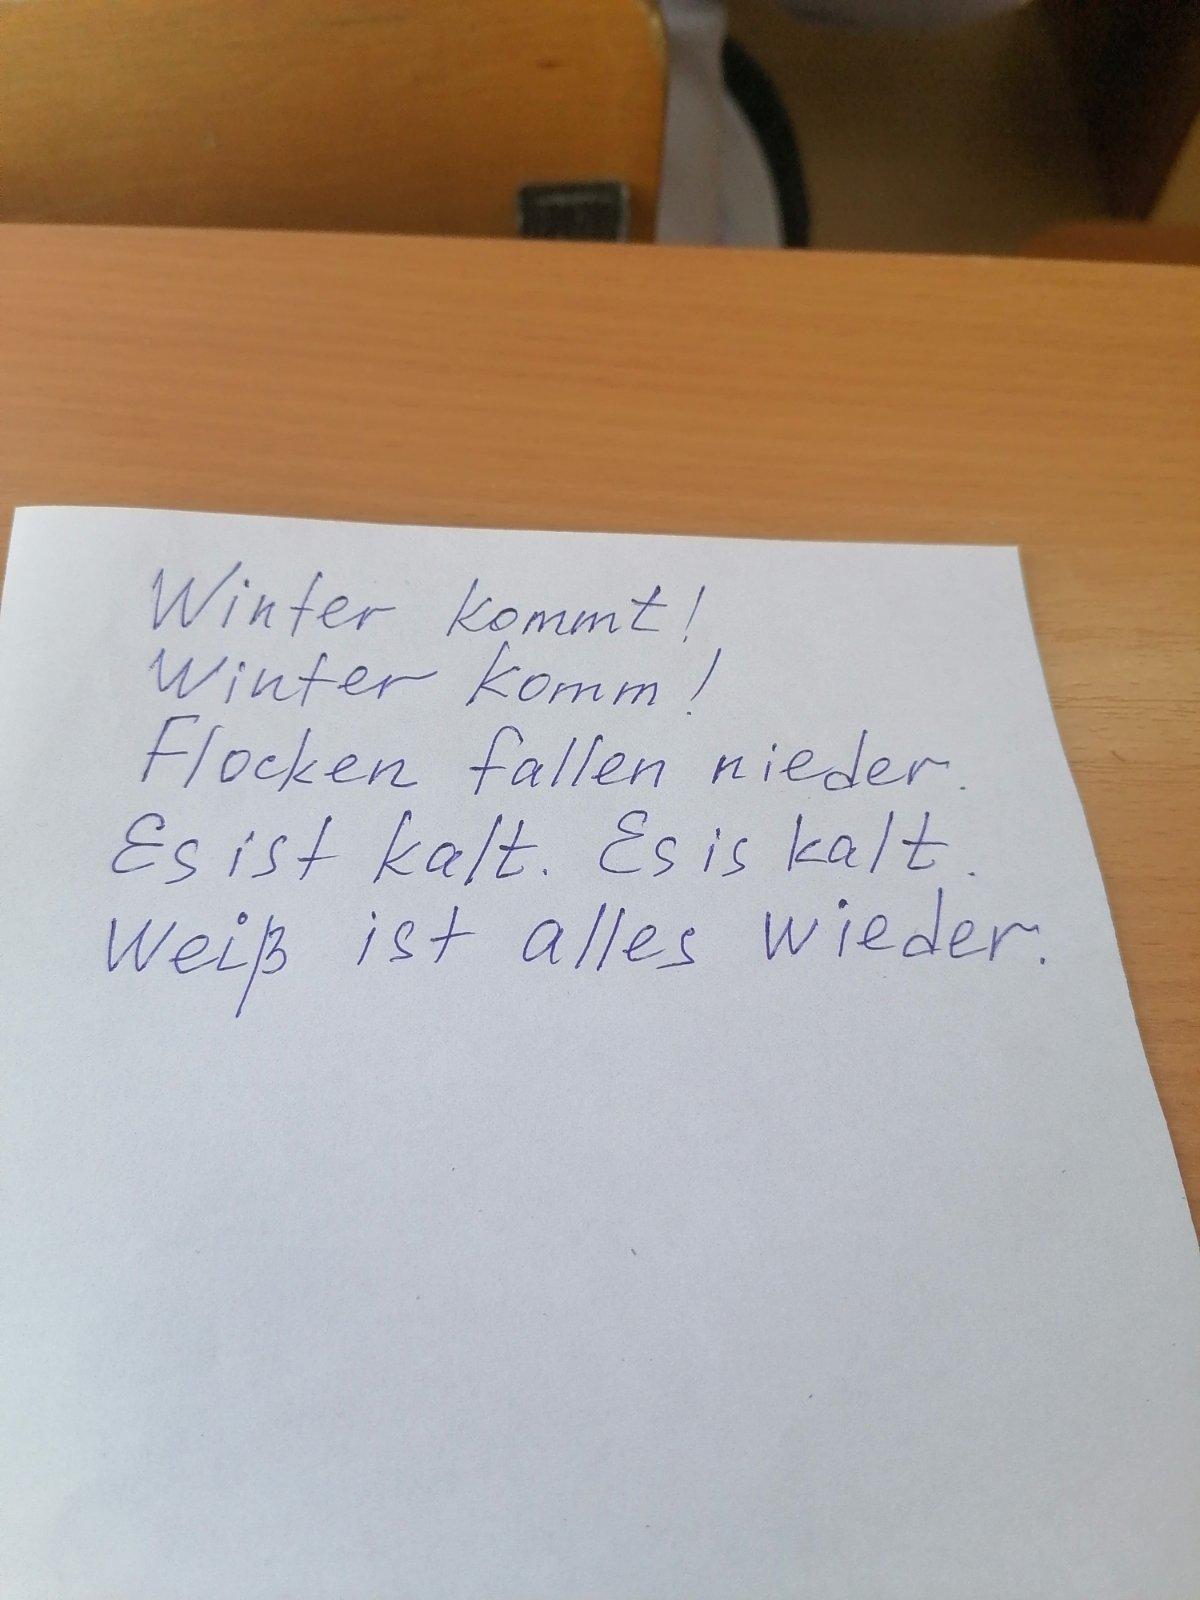 Winter kommt!
Winter komm!
Flocken fallen nieder.
Es ist kalt. Es is kalt.
Weiß ist alles wieder.